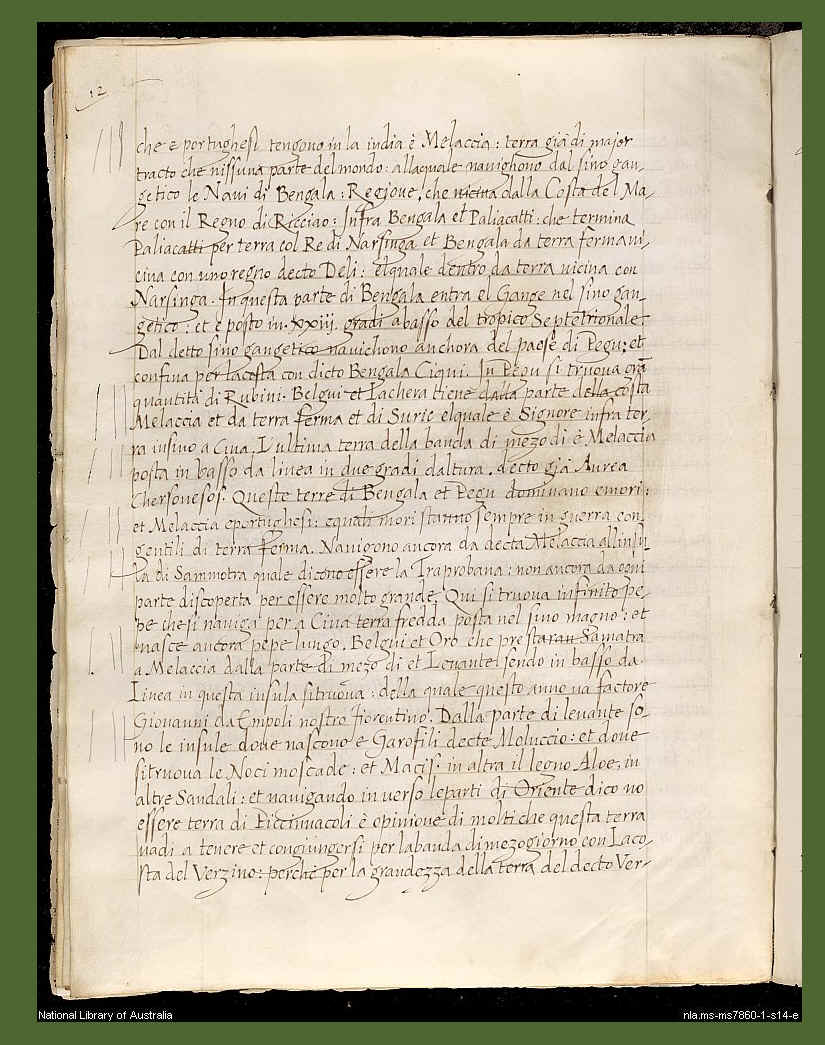 12
che e portughesi tengono in la india è Melaccia: terra già di major
tracto che nissuna parte del mondo: allaquale navighono dal sino gan-
getico le Navi di Bengala: Regione, che vicina dalla Costa del Ma-
re con il Regno di Ricciao: Infra Bengala et Paliacatti: che termina
Paliacatti per terra col Re di Narsinga et Bengala da terra ferma vi-
cina con uno regno decto Deli: elquale dentro da terra vicina con
Narsinga. In questa parte di Bengala entra el Gange nel sino gan-
getico: et è posto in. xxiij. gradi abasso del tropico Septetrionale.
Dal detto sino gangetico navichono anchora del paese di Pegu: et
confina per lacosta con dicto Bengala Ciqui. In Pegu si truova grã
quantità di Rubini. Belgui et Lachera tiene dalla parte della costa
Melaccia et da terra ferma et di Suric elquale è Signore infra ter-
ra insino a Cina. L'ultima terra della banda di mezo di è Melaccia
posta in basso da linea in due gradi daltura. decto già Aurea
Chersonesos. Queste terre di Bengala et Pegu dominano emori:
et Melaccia eportughesi: equali mori stanno sempre in guerra con
gentili di terra ferma. Navigono ancora da decta Melaccia allinsu
la di Sammotra quale dicono essere la Traprobana: non ancora da ogni
parte discoperta per essere molto grande. Qui si truova infinito pe-
pe che si naviga per a Cina terra fredda posta nel sino magno: et
nasce ancora pepe lungo. Belgui et Oro che prestaran Samatra
a Melaccia dalla parte di mezo di et Levante sendo in basso da
Linea in questa insula si truova: della quale questo anno va factore
Giovanni da Empoli nostro fiorentino. Dalla parte di levante so-
no le insule dove nascono e Garofili decte Moluccio: et dove
si truova le Noci moscade: et Macis. in altra il legno Aloe, in
altre Sandali: et navigando in verso leparti di Oriente dico no
essere terra di Piccinnacoli è opinione di molti che questa terra
vadi a tenere et congiungersi per labanda di mezogiorno con Laco-
sta del Verzino: perché per la grandezza della terra del decto Ver-
National Library of Australia
nla.ms-ms7860-1-s14-e